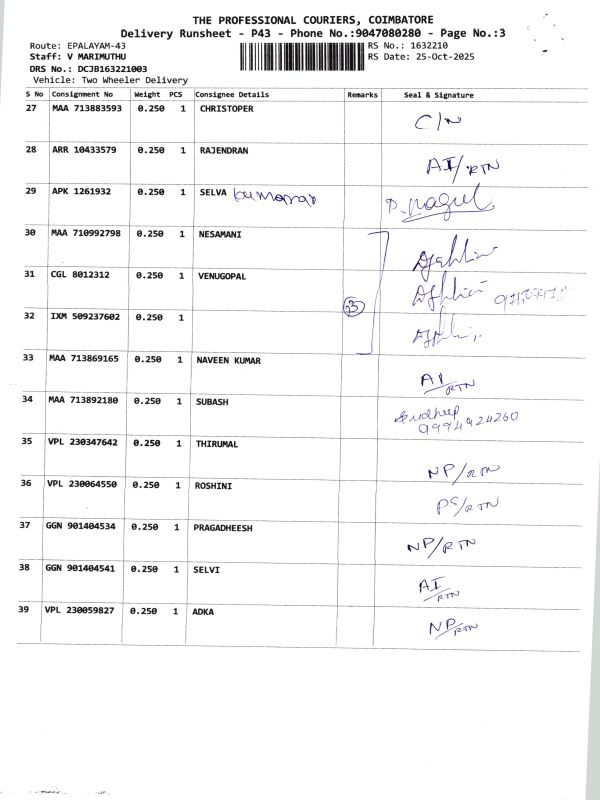 THE PROFESSIONAL COURIERS, COIMBATORE
Delivery Runsheet - P43 - Phone No.:9047080280 - Page No.:3
Route: EPALAYAM-43 RS No.: 1632210
Staff: V MARIMUTHU RS Date: 25-Oct-2025
DRS No.: DCJB163221003
Vehicle: Two Wheeler Delivery
S No Consignment No Weight PCS Consignee Details Remarks Seal & Signature
27 MAA 713883593 0.250 1 CHRISTOPER C/N
28 ARR 10433579 0.250 1 RAJENDRAN AI/RTN
29 APK 1261932 0.250 1 SELVA kumarar P. Nagul
30 MAA 710992798 0.250 1 NESAMANI
31 CGL 8012312 0.250 1 VENUGOPAL
32 IXM 509237602 0.250 1 3
33 MAA 713869165 0.250 1 NAVEEN KUMAR AI/RTN
34 MAA 713892180 0.250 1 SUBASH Sudheep
9994924260
35 VPL 230347642 0.250 1 THIRUMAL NP/RTN
36 VPL 230064550 0.250 1 ROSHINI PS/RTN
37 GGN 901404534 0.250 1 PRAGADHEESH NP/RTN
38 GGN 901404541 0.250 1 SELVI AI/RTN
39 VPL 230059827 0.250 1 ADKA NP/RTN